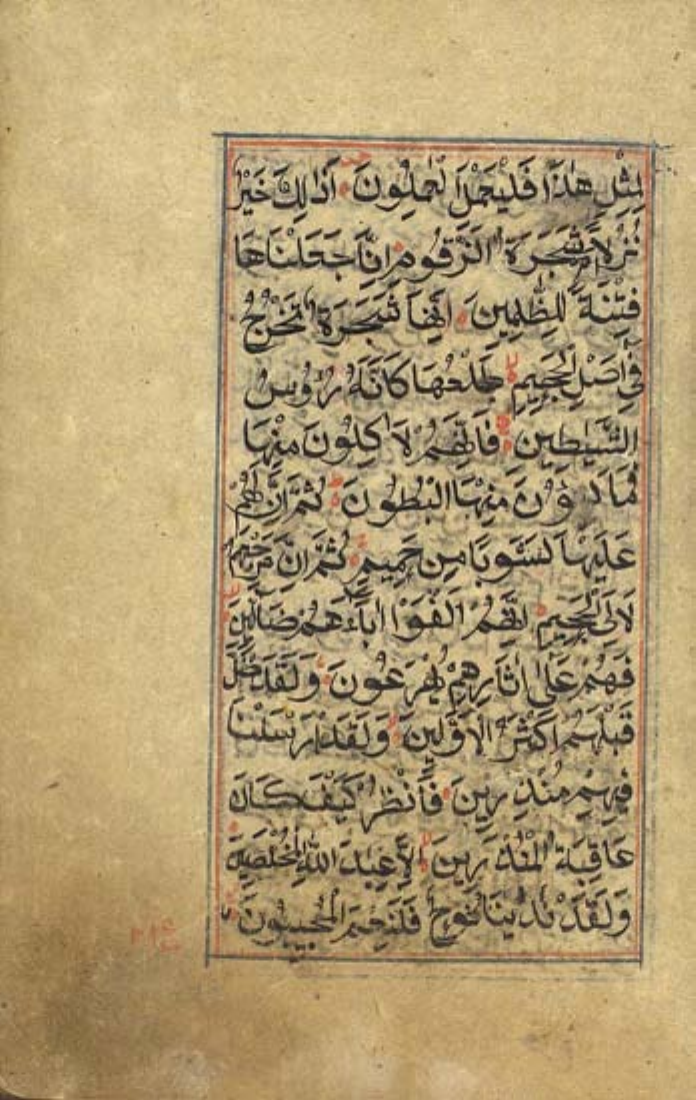 لِمِثْلِ هٰذَا فَلْيَعْمَلِ الْعٰمِلُونَ اَذٰلِكَ خَيْرٌ
نُزُلًا اَمْ شَجَرَةُ الزَّقُّومِ اِنَّا جَعَلْنَاهَا
فِتْنَةً لِلظّٰلِمِينَ اِنَّهَا شَجَرَةٌ تَخْرُجُ
فِي اَصْلِ الْجَحِيمِ طَلْعُهَا كَاَنَّهُ رُؤُوسُ
الشَّيٰطِينِ فَاِنَّهُمْ لَاٰكِلُونَ مِنْهَا
فَمَالِؤُنَ مِنْهَا الْبُطُونَ ثُمَّ اِنَّ لَهُمْ
عَلَيْهَا لَشَوْبًا مِنْ حَمِيمٍ ثُمَّ اِنَّ مَرْجِعَهُمْ
لَاِلَى الْجَحِيمِ اِنَّهُمْ اَلْفَوْا اٰبَاءَهُمْ ضَالِّينَ
فَهُمْ عَلٰى اٰثَارِهِمْ يُهْرَعُونَ وَلَقَدْ ضَلَّ
قَبْلَهُمْ اَكْثَرُ الْاَوَّلِينَ وَلَقَدْ اَرْسَلْنَا
فِيهِمْ مُنْذِرِينَ فَانْظُرْ كَيْفَ كَانَ
عَاقِبَةُ الْمُنْذَرِينَ اِلَّا عِبَادَ اللّٰهِ الْمُخْلَصِينَ
وَلَقَدْ نَادٰينَا نُوحٌ فَلَنِعْمَ الْمُجِيبُونَ